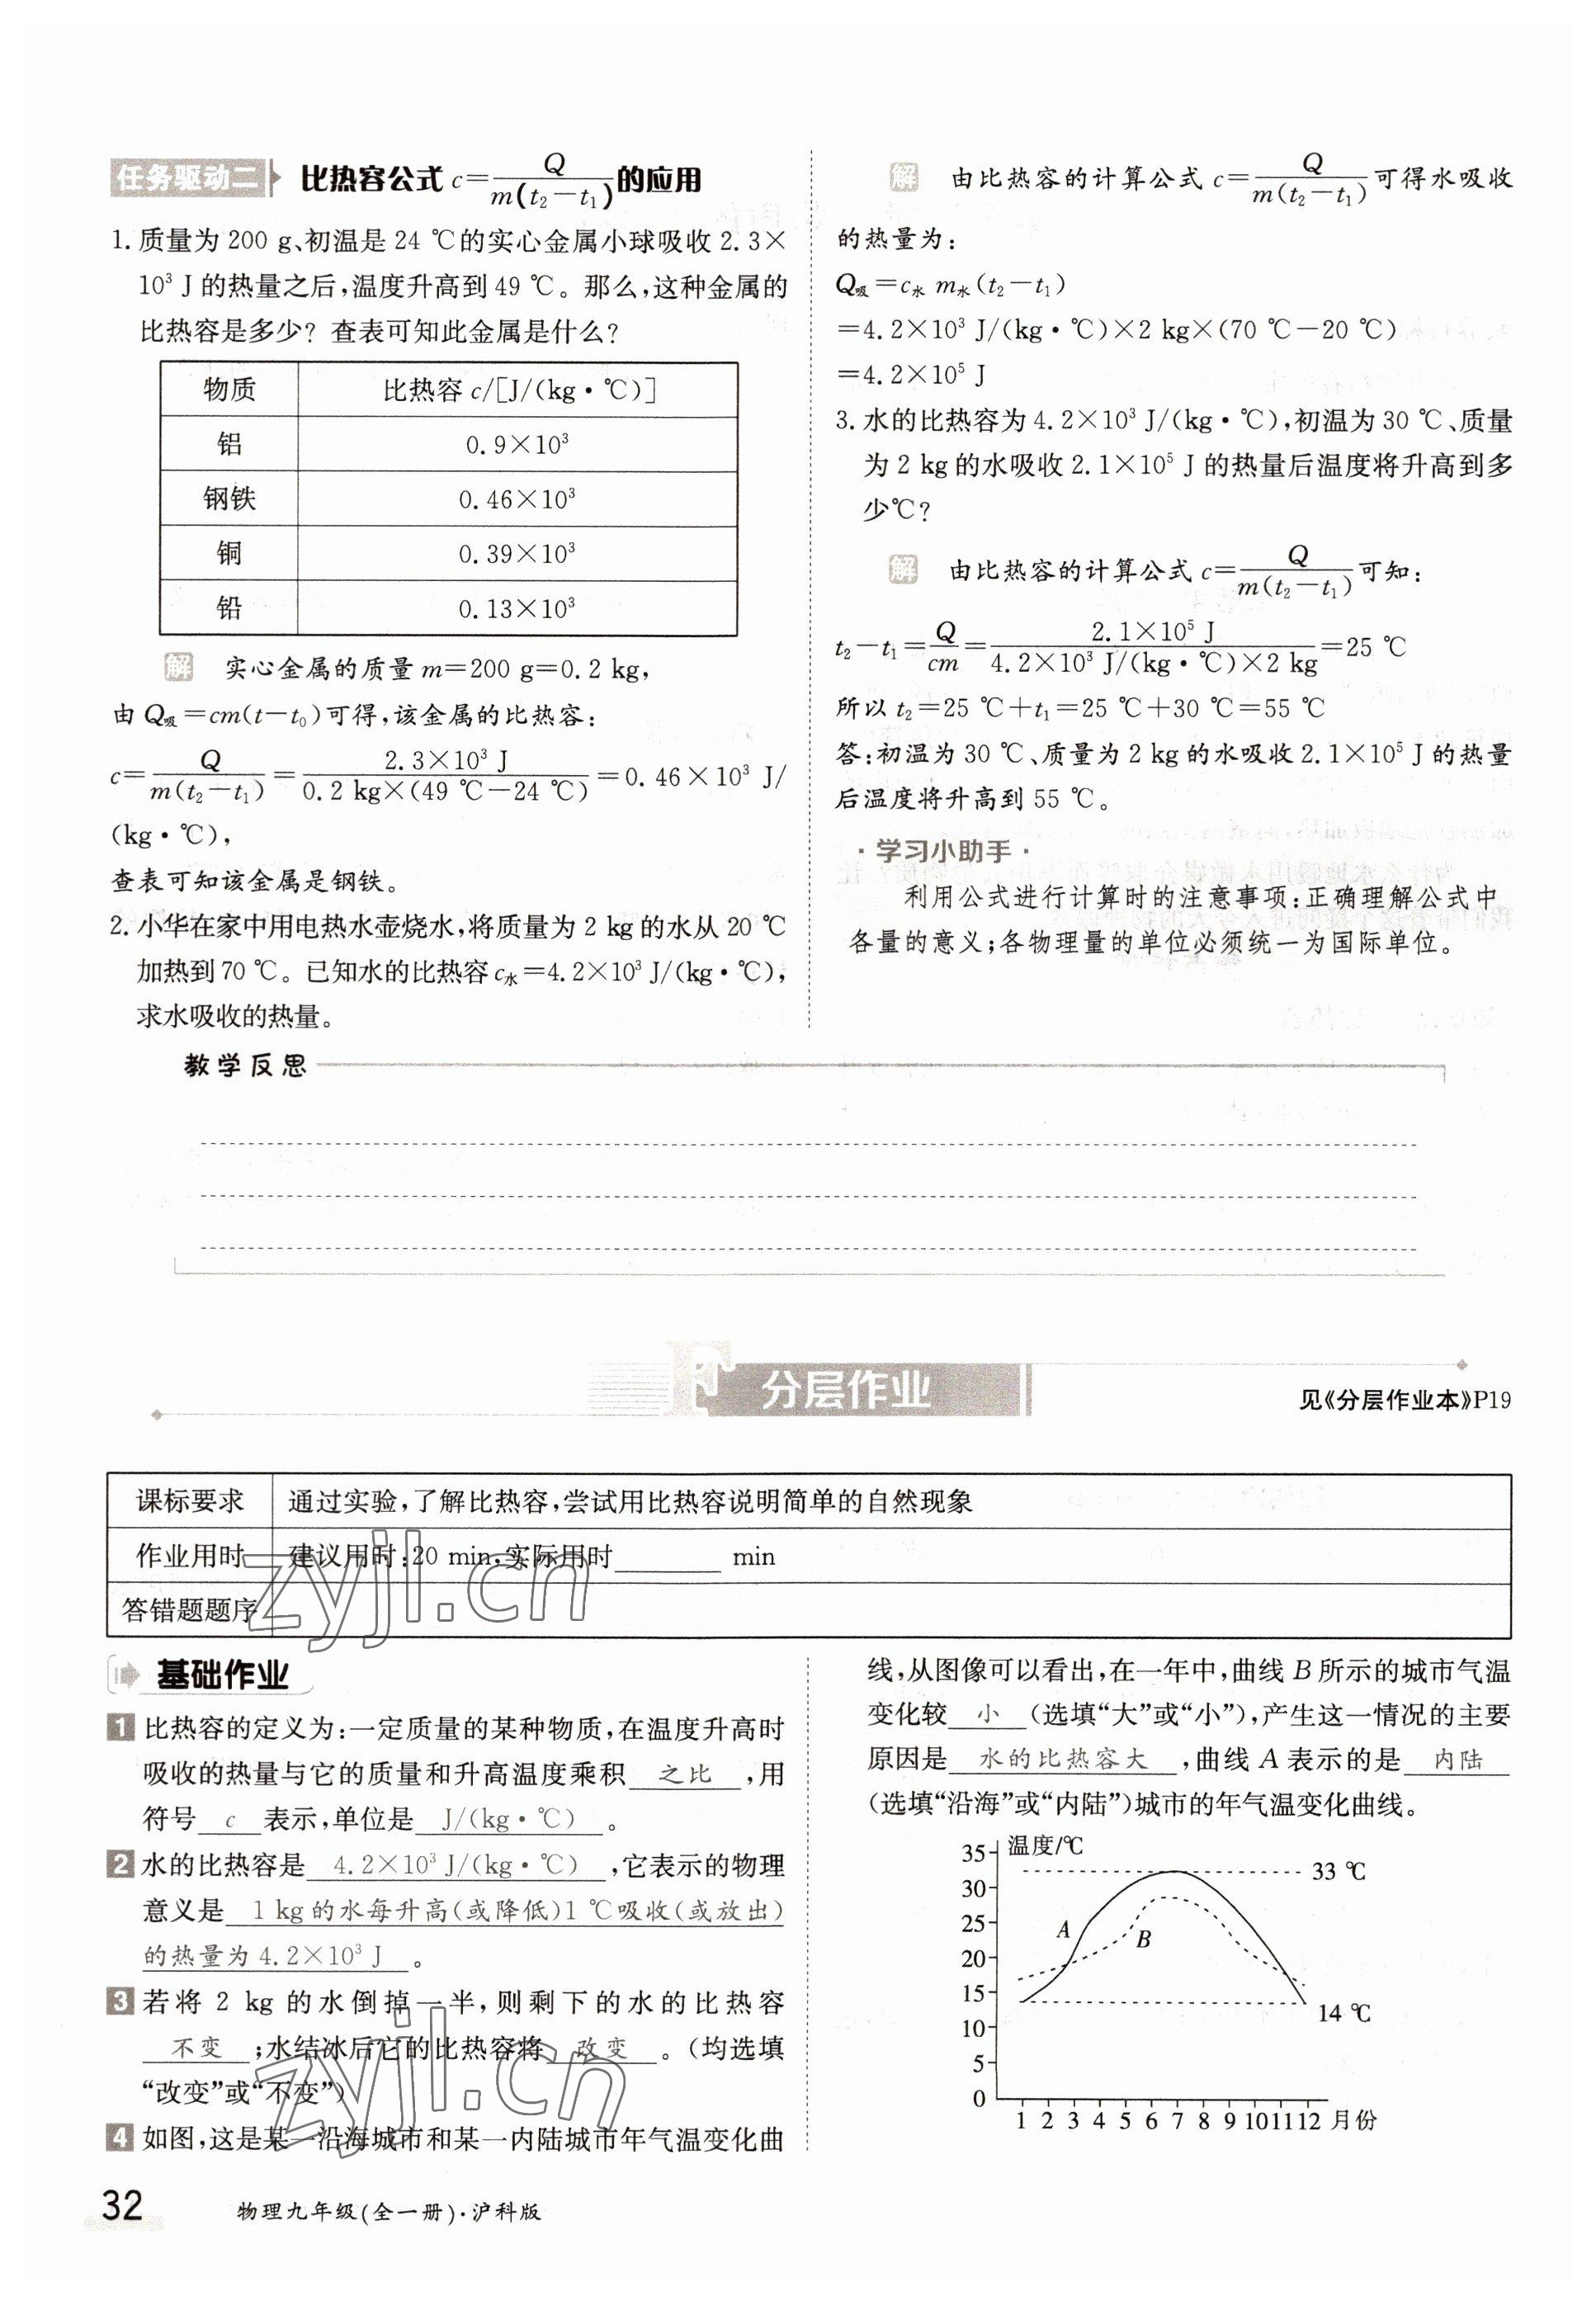 任务驱动二 比热容公式 c=Q/m(t₂-t₁)的应用
1. 质量为 200 g、初温是 24 ℃的实心金属小球吸收 2.3×
10³ J 的热量之后,温度升高到 49 ℃。那么,这种金属的
比热容是多少? 查表可知此金属是什么?
物质 比热容 c/[J/(kg·℃)]
铝 0.9×10³
钢铁 0.46×10³
铜 0.39×10³
铅 0.13×10³
解 实心金属的质量 m=200 g=0.2 kg,
由 Q吸=cm(t-t₀)可得,该金属的比热容:
c=Q/m(t₂-t₁)=2.3×10³ J/0.2 kg×(49 ℃-24 ℃)=0.46×10³ J/
(kg·℃),
查表可知该金属是钢铁。
2. 小华在家中用电热水壶烧水,将质量为 2 kg 的水从 20 ℃
加热到 70 ℃。已知水的比热容 c水=4.2×10³ J/(kg·℃),
求水吸收的热量。
解 由比热容的计算公式 c=Q/m(t₂-t₁)可得水吸收
的热量为:
Q吸=c水 m水(t₂-t₁)
=4.2×10³ J/(kg·℃)×2 kg×(70 ℃-20 ℃)
=4.2×10⁵ J
3. 水的比热容为 4.2×10³ J/(kg·℃),初温为 30 ℃、质量
为 2 kg 的水吸收 2.1×10⁵ J 的热量后温度将升高到多
少℃?
解 由比热容的计算公式 c=Q/m(t₂-t₁)可知:
t₂-t₁=Q/cm=2.1×10⁵ J/4.2×10³ J/(kg·℃)×2 kg=25 ℃
所以 t₂=25 ℃+t₁=25 ℃+30 ℃=55 ℃
答:初温为 30 ℃、质量为 2 kg 的水吸收 2.1×10⁵ J 的热量
后温度将升高到 55 ℃。
·学习小助手·
利用公式进行计算时的注意事项:正确理解公式中
各量的意义;各物理量的单位必须统一为国际单位。
教学反思
F 分层作业
见《分层作业本》P19
课标要求 通过实验,了解比热容,尝试用比热容说明简单的自然现象
作业用时 建议用时:20 min,实际用时______ min
答错题题序
基础作业
1 比热容的定义为:一定质量的某种物质,在温度升高时
吸收的热量与它的质量和升高温度乘积 之比 ,用
符号 c 表示,单位是 J/(kg·℃) 。
2 水的比热容是 4.2×10³ J/(kg·℃) ,它表示的物理
意义是 1 kg的水每升高(或降低)1 ℃吸收(或放出)
的热量为 4.2×10³ J 。
3 若将 2 kg 的水倒掉一半,则剩下的水的比热容
不变 ;水结冰后它的比热容将 改变 。(均选填
“改变”或“不变”)
4 如图,这是某一沿海城市和某一内陆城市年气温变化曲
线,从图像可以看出,在一年中,曲线 B 所示的城市气温
变化较 小 (选填“大”或“小”),产生这一情况的主要
原因是 水的比热容大 ,曲线 A 表示的是 内陆
(选填“沿海”或“内陆”)城市的年气温变化曲线。
温度/℃
35
30
25
20
15
10
5
0
33 ℃
A
B
14 ℃
1 2 3 4 5 6 7 8 9 10 11 12 月份
zyjl.cn
zyjl.cn
32 物理九年级(全一册)·沪科版